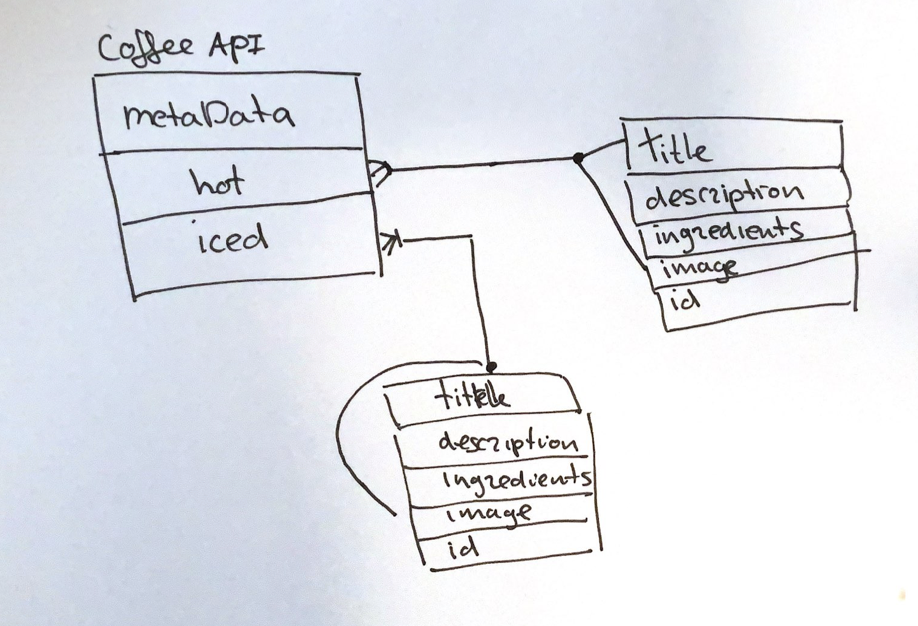 Coffee API
metaData
hot
iced
title
description
ingredients
image
id
description
ingredients
image
id